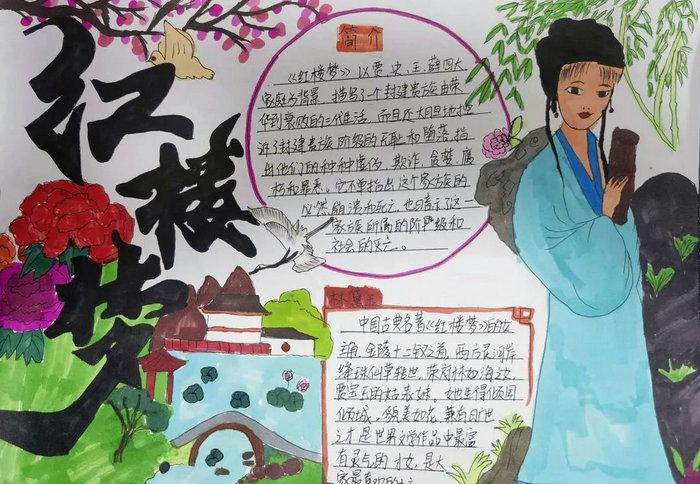 红楼梦
简介
《红楼梦》以贾、史、王、薛四大
家庭为背景,描写了一个封建贵族由荣
华到衰败的三代生活,而且还大胆地控
诉了封建贵族阶级的无耻和堕落,指
出他们的种种虚伪、欺诈、贪婪、腐
朽和罪恶。它不单指出这个家族的
必然崩溃和死亡,也暗示了这一
家族所属的阶严级和
社会的灭亡。
林黛玉
中国古典名著《红楼梦》的女
主角,金陵十二钗之首,西方灵河岸
绛珠仙草转世,荣府林如海之女
贾宝玉的姑表妹。她生得倾国
倾城,貌美如花,兼有旷世
之才,是世界文学作品中最富
有灵气的才女,是大
家最喜欢的